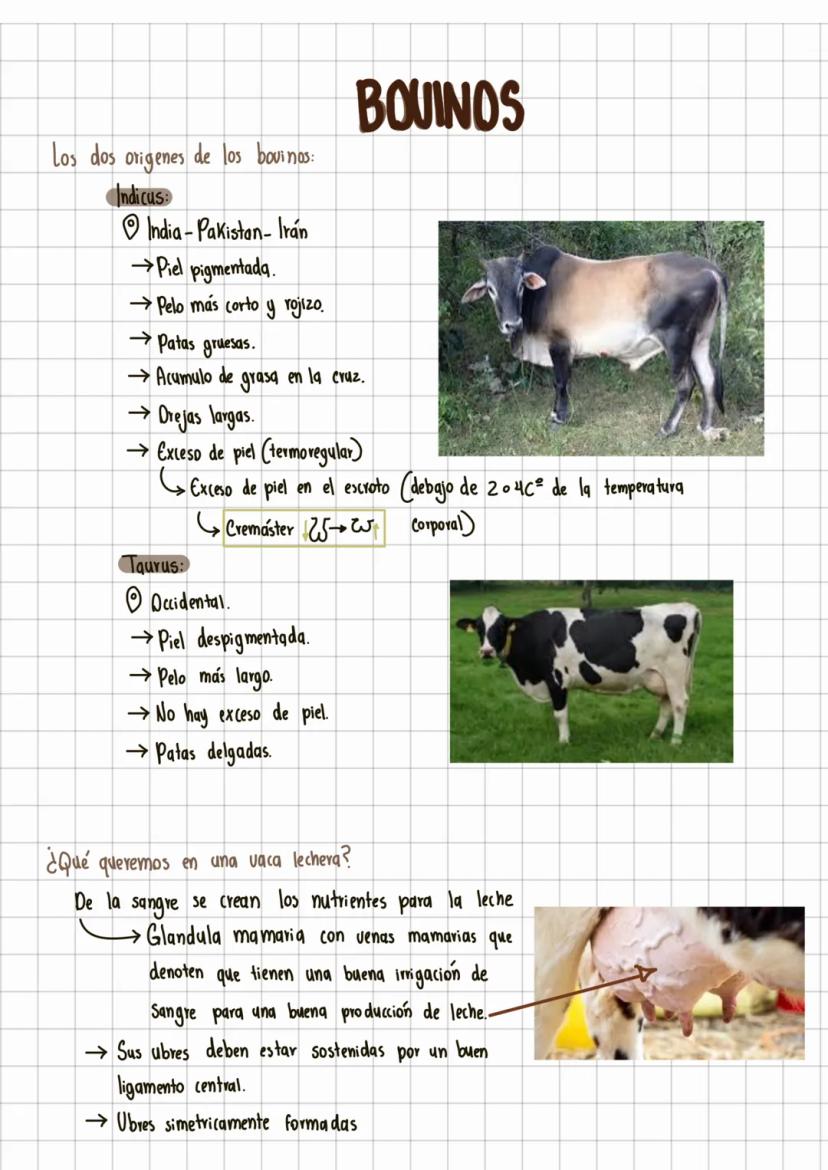 BOVINOS
Los dos origenes de los bovinos:
Indicus:
India - Pakistan - Irán
→ Piel pigmentada.
→ Pelo más corto y rojizo.
→ Patas gruesas.
→ Acumulo de grasa en la cruz.
→ Orejas largas.
→ Exceso de piel (termoregular)
Exceso de piel en el escroto (debajo de 2 o 4Cº de la temperatura
corporal)
Cremáster ↓ → ↑
Taurus:
Occidental.
→ Piel despigmentada.
→ Pelo más largo.
→ No hay exceso de piel.
→ Patas delgadas.
¿Qué queremos en una vaca lechera?
De la sangre se crean los nutrientes para la leche
→ Glandula mamaria con venas mamarias que
denoten que tienen una buena irrigación de
sangre para una buena producción de leche.
→ Sus ubres deben estar sostenidas por un buen
ligamento central.
→ Ubres simetricamente formadas